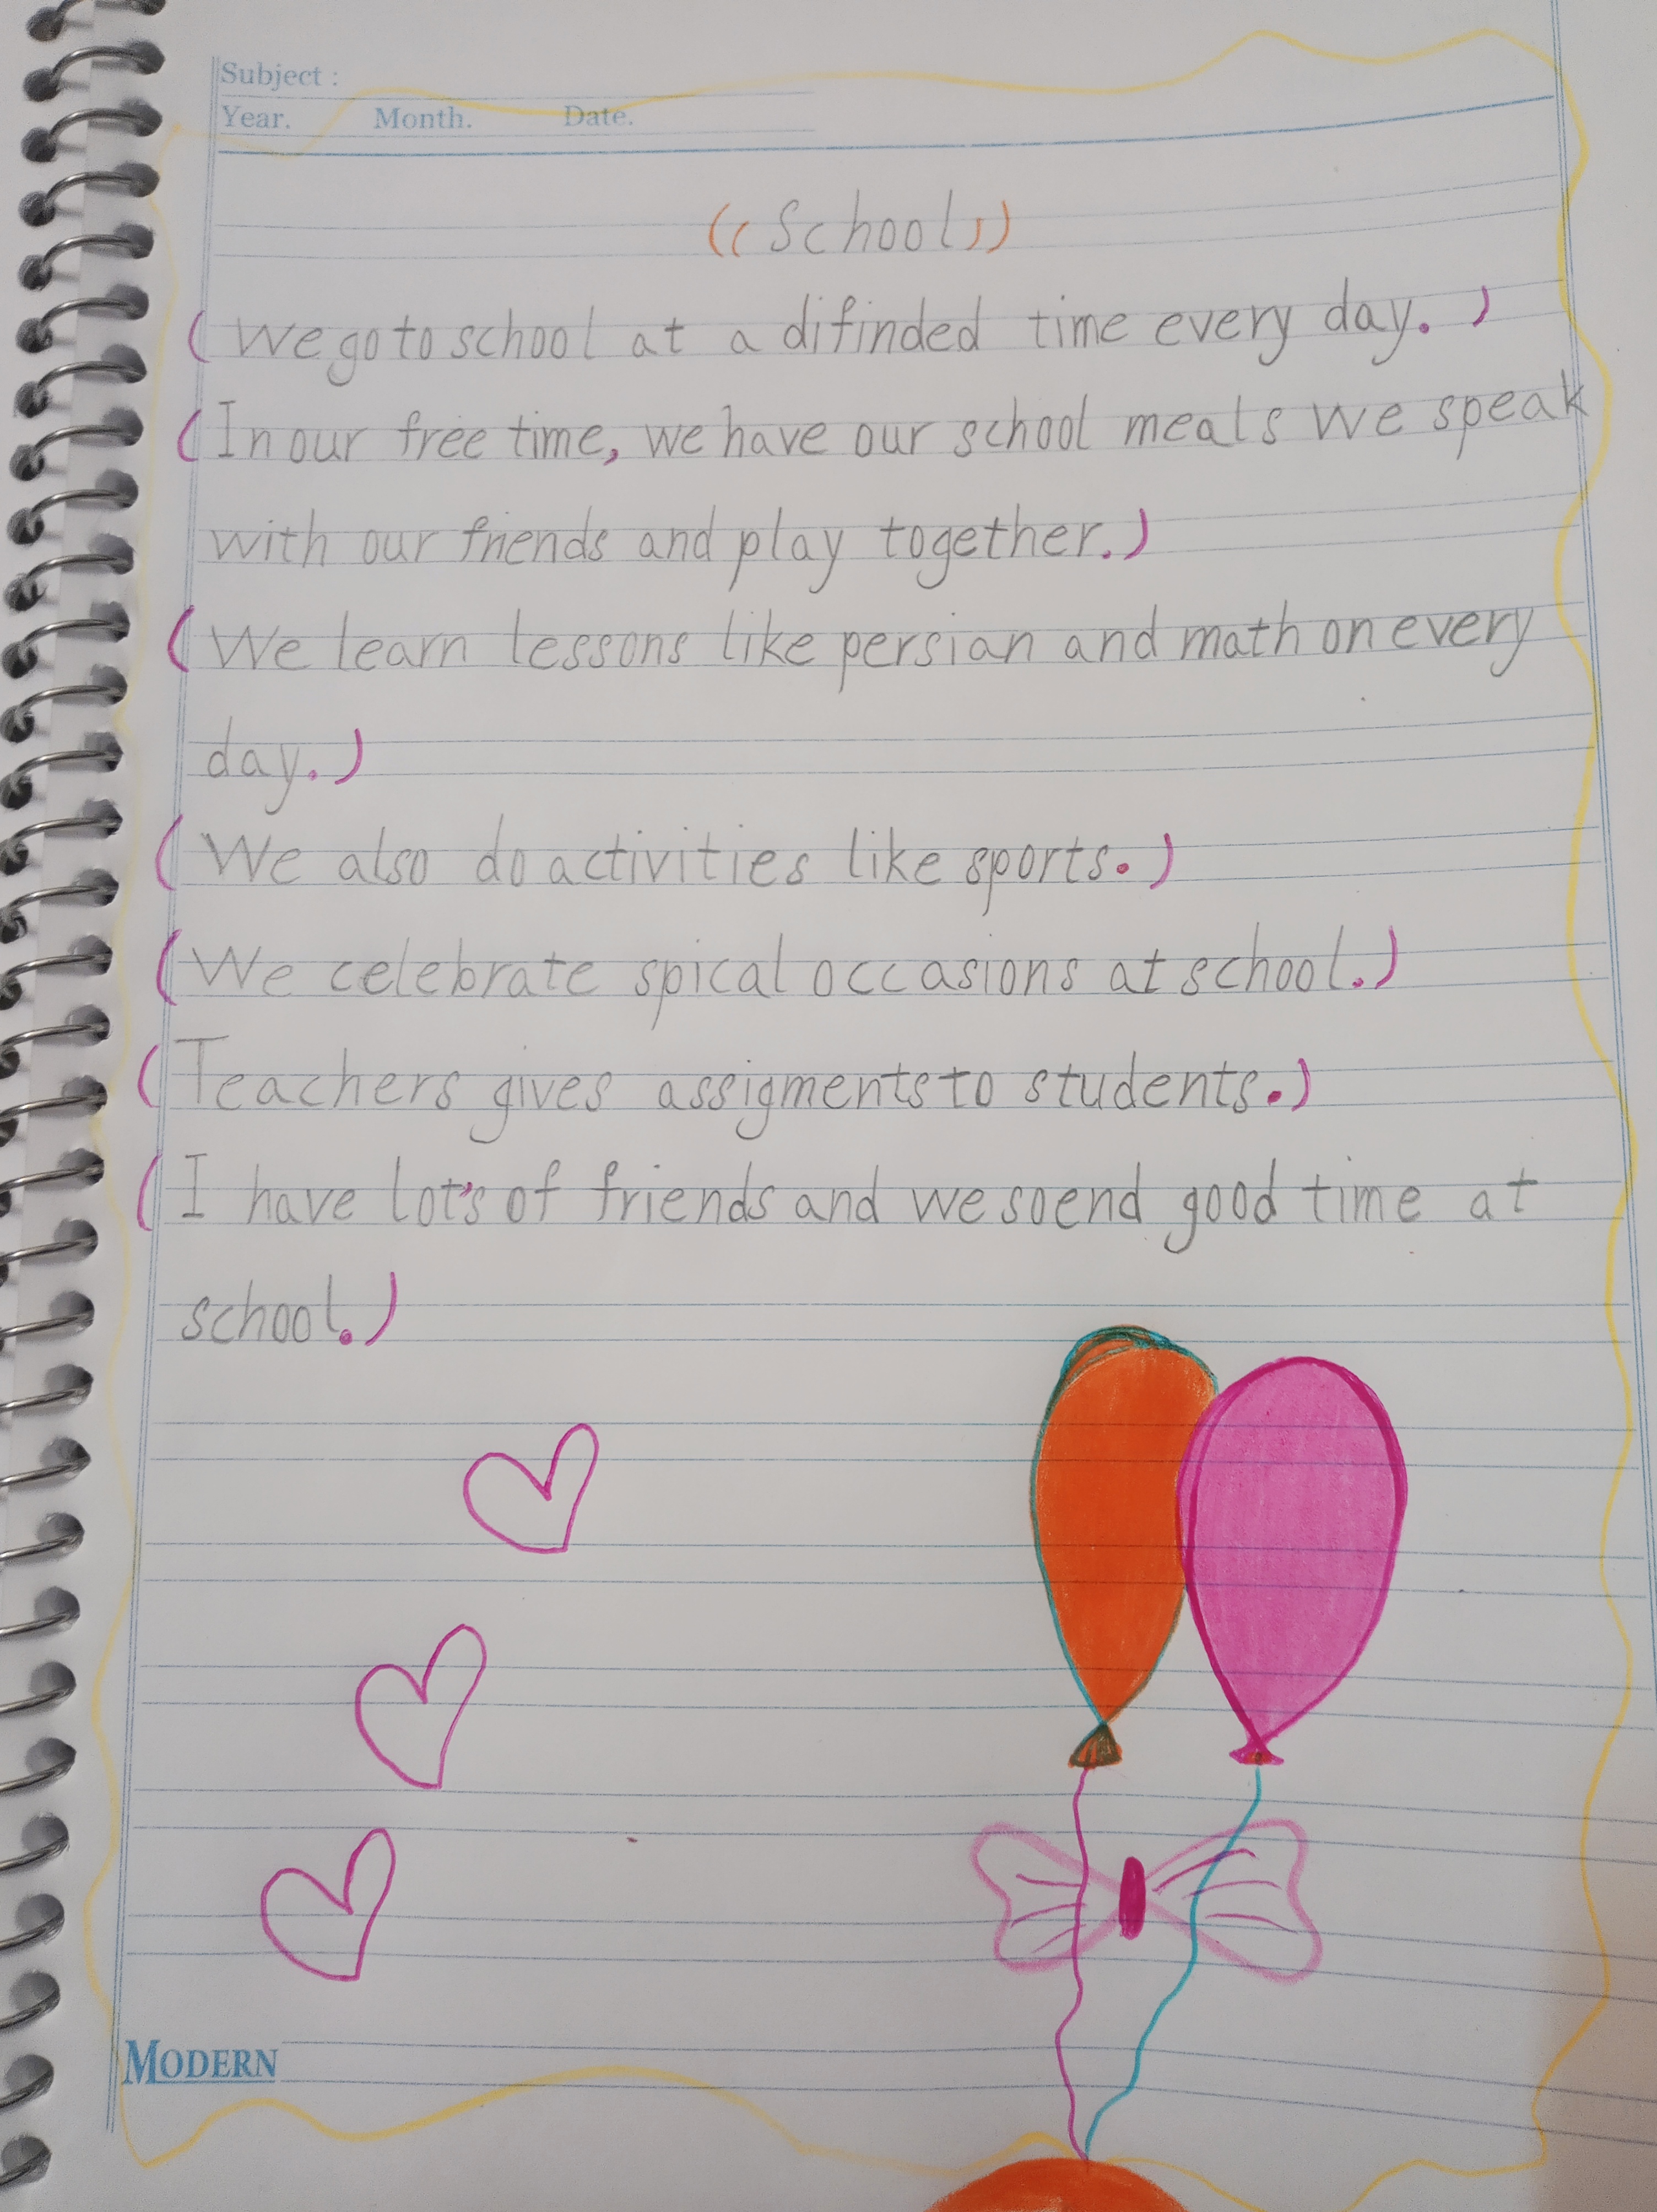 Subject :
Year. Month. Date.
((School))
(We go to school at a difinded time every day.)
(In our free time, we have our school meals we speak
with our friends and play together.)
(We learn lessons like persian and math on every
day.)
(We also do activities like sports.)
(We celebrate spical occasions at school.)
(Teachers gives assigments to students.)
(I have lot's of friends and we soend good time at
school.)
MODERN